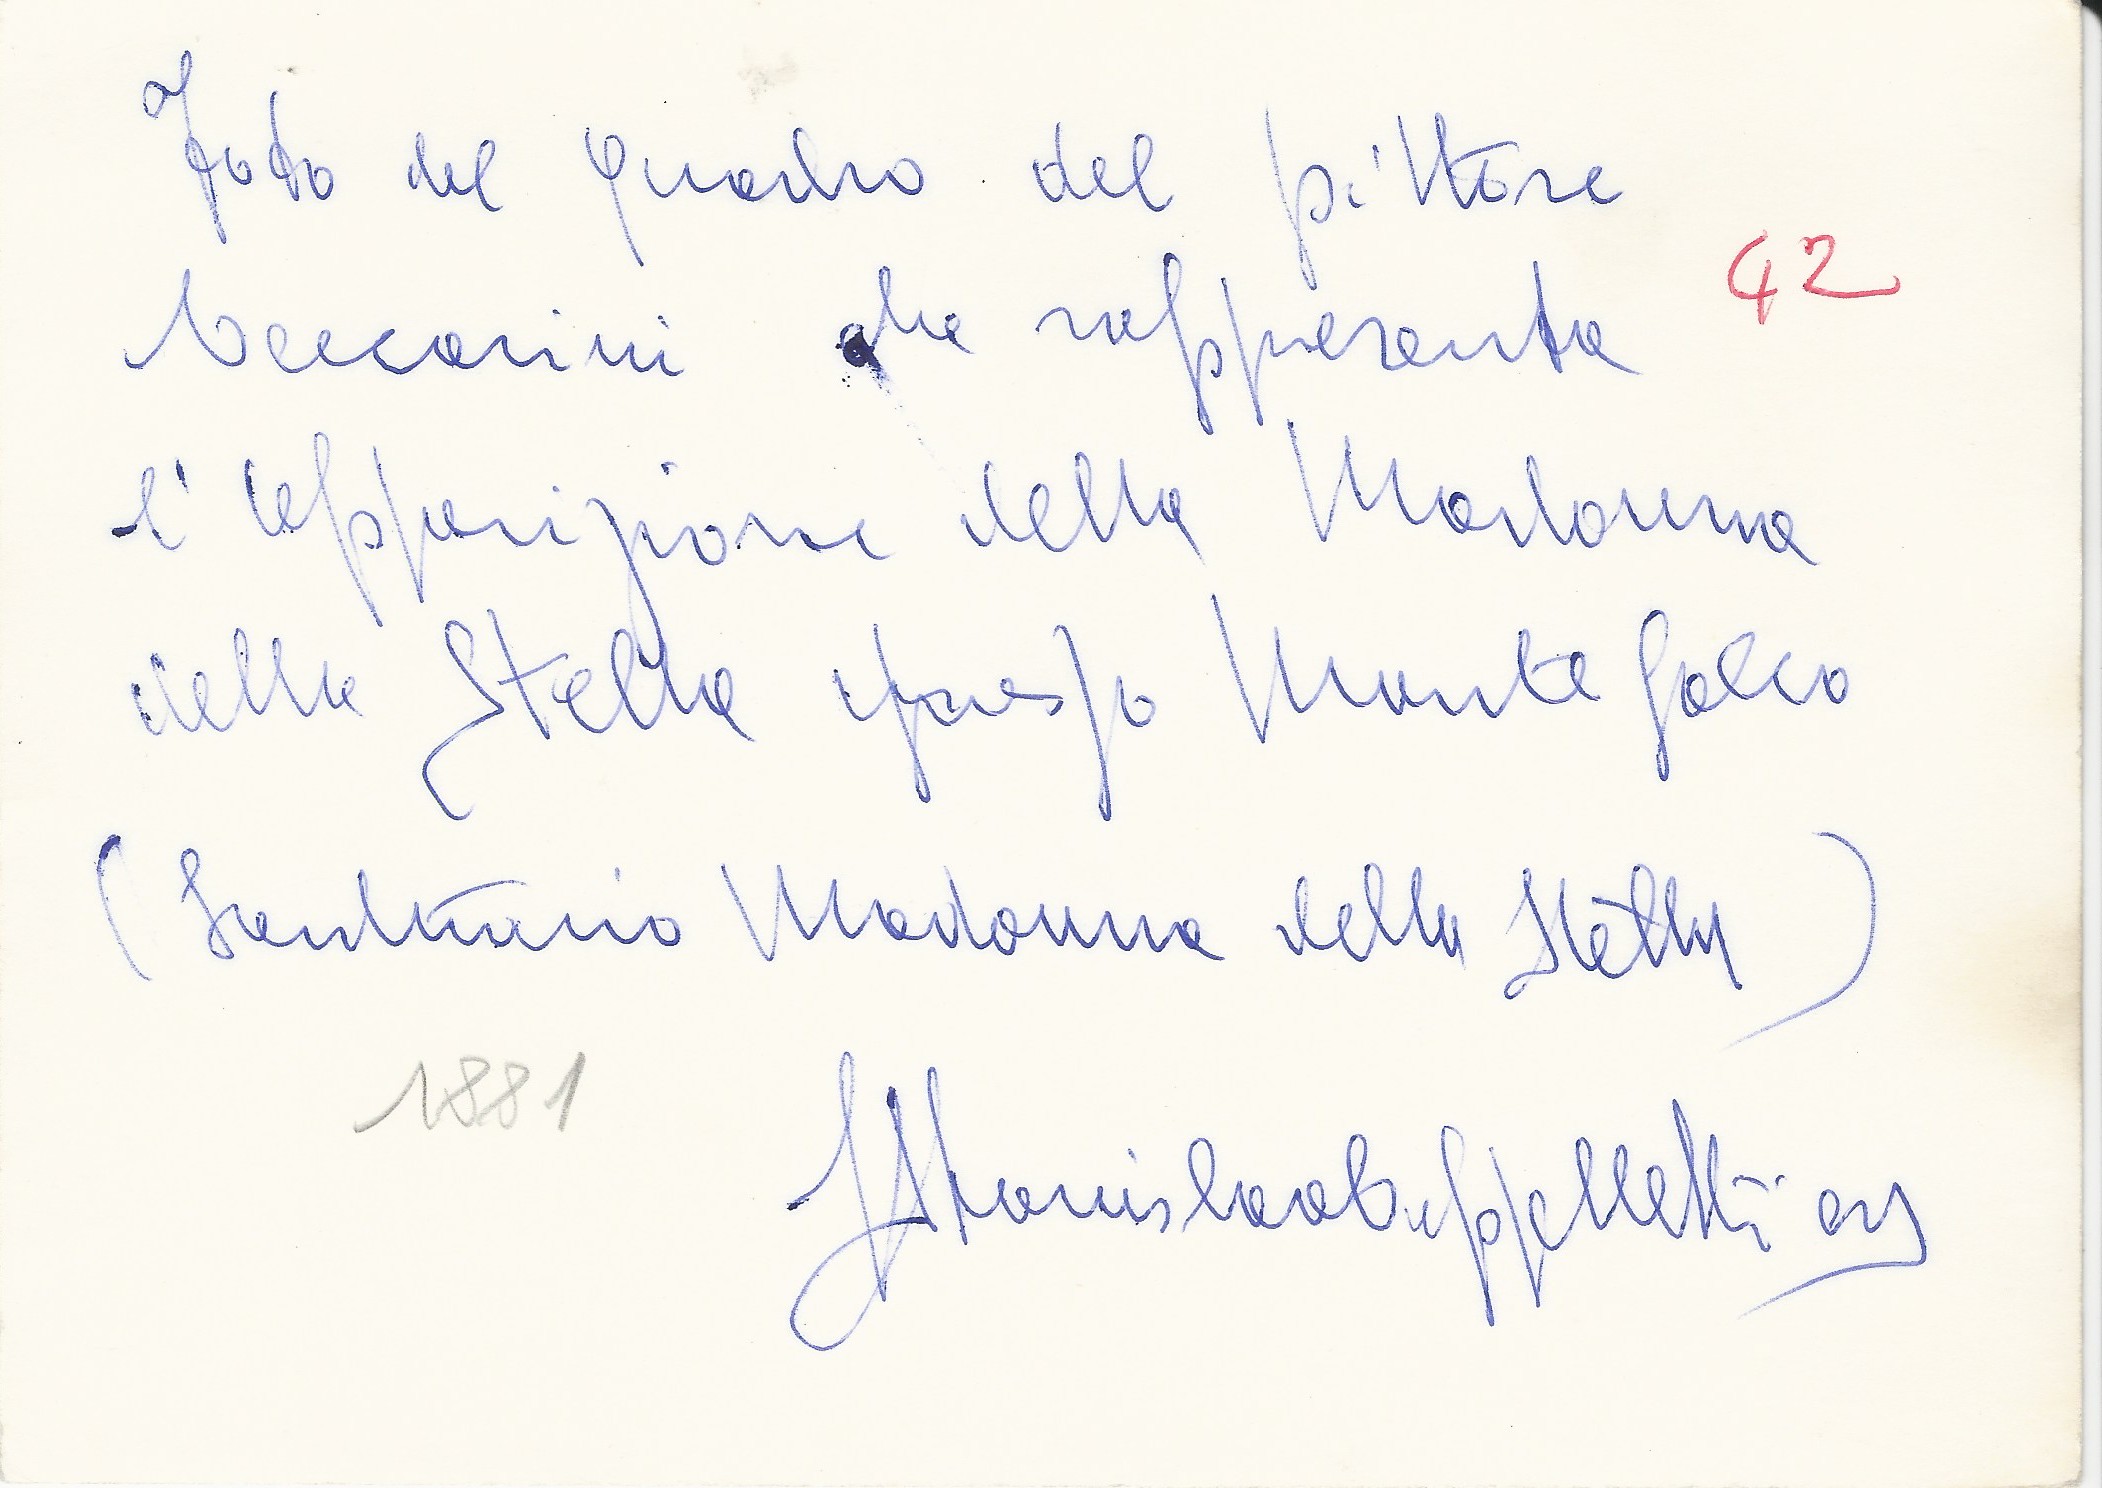 Foto del quadro del pittore
42
Ceccarini che rappresenta
l'apparizione della Madonna
della Stella presso Montefalco
(Santuario Madonna della Stella)
1881
Stanislao